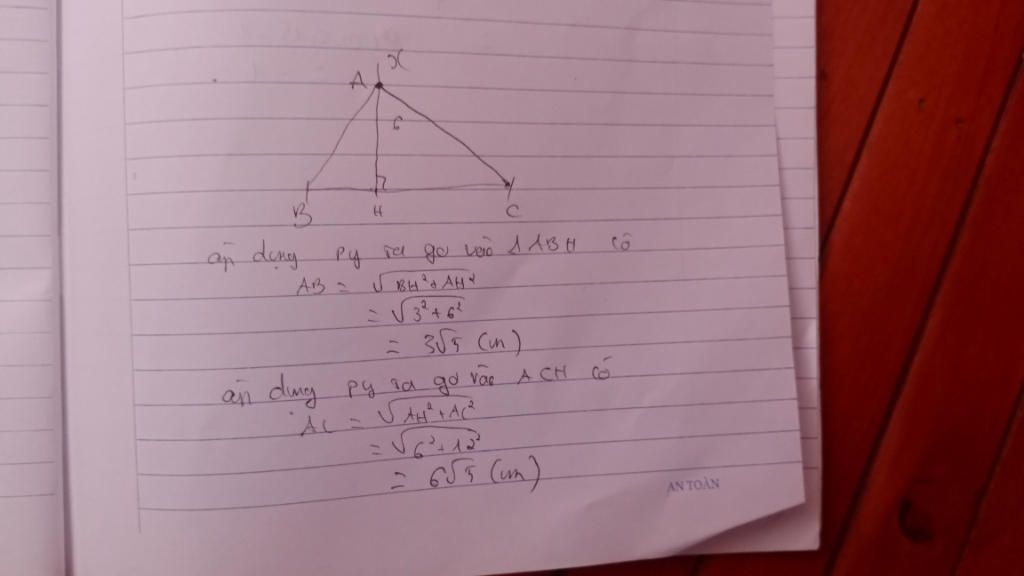 x
A
6
B H C
áp dụng Py ta go vào Δ ABH có
AB = √BH²+AH²
= √3²+6²
= 3√5 (cm)
áp dung Py ta go vào ACH có
AC = √AH²+AC²
= √6²+12²
= 6√5 (cm)
AN TOÀN